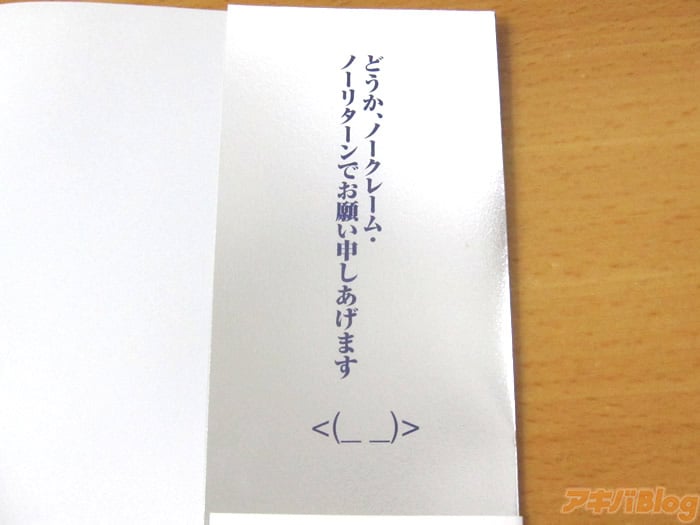 どうか、ノークレーム・
ノーリターンでお願い申しあげます
<(_ _)>
アキバBlog